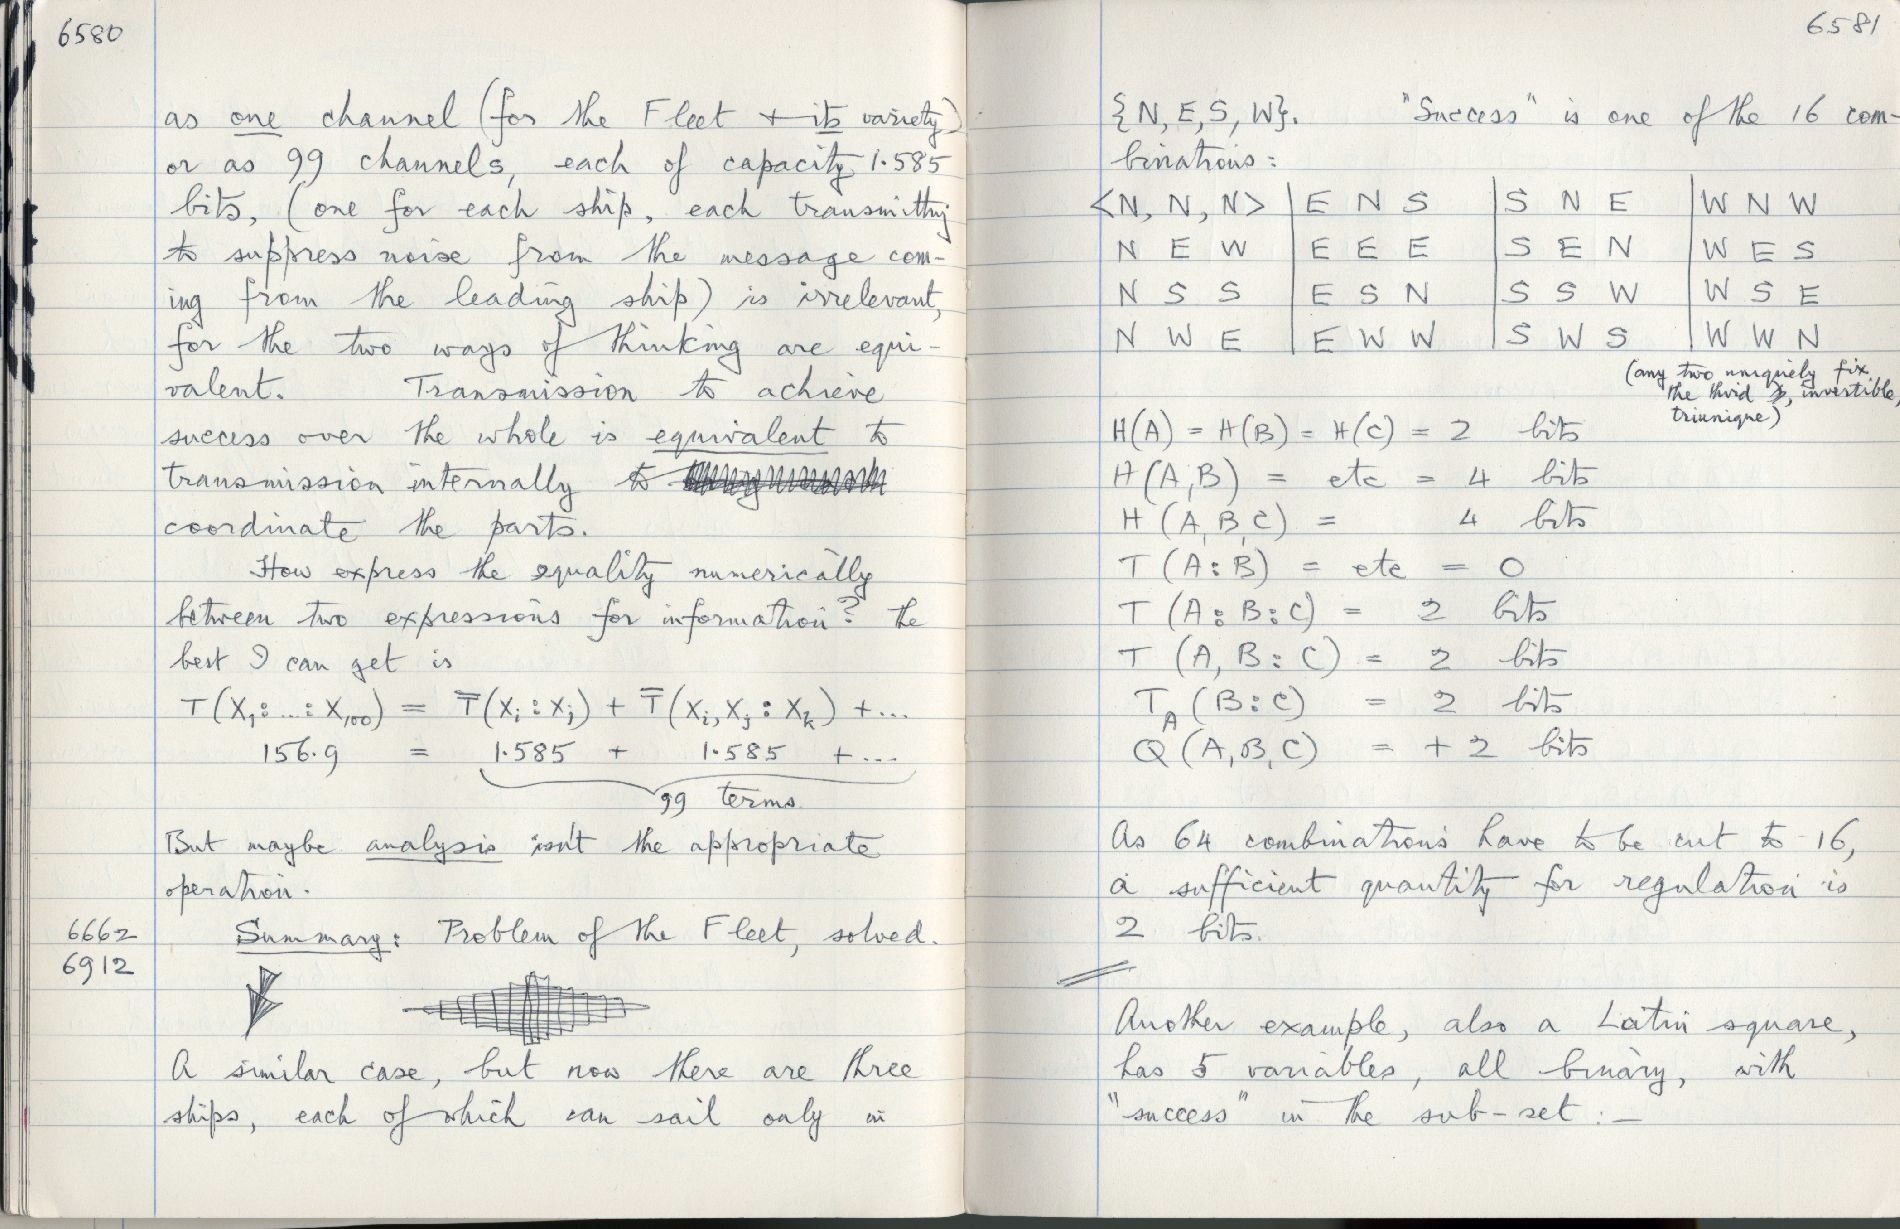 6580
as one channel (for the Fleet + its variety)
or as 99 channels, each of capacity 1.585
bits, (one for each ship, each transmitting
to suppress noise from the message com-
ing from the leading ship) is irrelevant,
for the two ways of thinking are equi-
valent. Transmission to achieve
success over the whole is equivalent to
transmission internally to
coordinate the parts.
How express the equality numerically
between two expressions for information? The
best I can get is
T(X₁:...:X₁₀₀) = T̅(Xᵢ:Xⱼ) + T̿(Xᵢ,Xⱼ:Xₖ) + ...
156.9 = 1.585 + 1.585 + ...
99 terms
But maybe analysis isn't the appropriate
operation.
6662
6912
Summary: Problem of the Fleet, solved.
A similar case, but now there are three
ships, each of which can sail only in
6581
{N, E, S, W}. "Success" is one of the 16 com-
binations:
<N, N, N> | E N S | S N E | W N W
N E W | E E E | S E N | W E S
N S S | E S N | S S W | W S E
N W E | E W W | S W S | W W N
(any two uniquely fix
the third, invertible,
triunique)
H(A) = H(B) = H(C) = 2 bits
H(A,B) = etc = 4 bits
H(A,B,C) = 4 bits
T(A:B) = etc = 0
T(A:B:C) = 2 bits
T(A,B:C) = 2 bits
T_A(B:C) = 2 bits
Q(A,B,C) = +2 bits
As 64 combinations have to be cut to 16,
a sufficient quantity for regulation is
2 bits.
Another example, also a Latin square,
has 5 variables, all binary, with
"success" in the sub-set:-